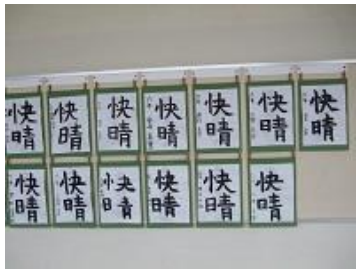 快晴
快晴
快晴
快晴
快晴
快晴
快晴
快晴
快晴
快晴
快晴
快晴
快晴